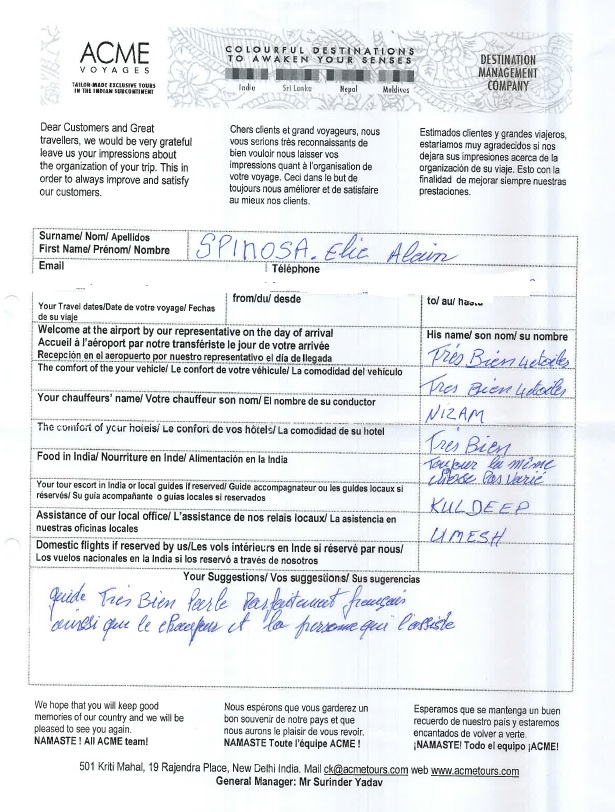 ACME
VOYAGES
TAILOR-MADE EXCLUSIVE TOURS
IN THE INDIAN SUBCONTINENT
COLOURFUL DESTINATIONS
TO AWAKEN YOUR SENSES
India Sri Lanka Nepal Maldives
DESTINATION
MANAGEMENT
COMPANY
Dear Customers and Great
travellers, we would be very grateful
leave us your impressions about
the organization of your trip. This in
order to always improve and satisfy
our customers.
Chers clients et grand voyageurs, nous
vous serions très reconnaissants de
bien vouloir nous laisser vos
impressions quant à l'organisation de
votre voyage. Ceci dans le but de
toujours nous améliorer et de satisfaire
au mieux nos clients.
Estimados clientes y grandes viajeros,
estaríamos muy agradecidos si nos
dejara sus impresiones acerca de la
organización de su viaje. Esto con la
finalidad de mejorar siempre nuestras
prestaciones.
Surname/ Nom/ Apellidos
First Name/ Prénom/ Nombre
SPINOSA. Elie Alain
Email Téléphone
Your Travel dates/Date de votre voyage/ Fechas
de su viaje
from/du/ desde
to/ au/ hasta
Welcome at the airport by our representative on the day of arrival
Accueil à l'aéroport par notre transfériste le jour de votre arrivée
Recepción en el aeropuerto por nuestro representativo el día de llegada
His name/ son nom/ su nombre
Très Bien 4 étoiles
The comfort of the your vehicle/ Le confort de votre véhicule/ La comodidad del vehículo
Très Bien 4 étoiles
Your chauffeurs' name/ Votre chauffeur son nom/ El nombre de su conductor
NIZAM
The comfort of your hotels/ Le confort de vos hôtels/ La comodidad de su hotel
Très Bien
Food in India/ Nourriture en Inde/ Alimentación en la India
Toujour la même
chose Pas varié
Your tour escort in India or local guides if reserved/ Guide accompagnateur ou les guides locaux si
réservés/ Su guía acompañante o guías locales si reservados
KULDEEP
Assistance of our local office/ L'assistance de nos relais locaux/ La asistencia en
nuestras oficinas locales
UMESH
Domestic flights if reserved by us/Les vols intérieurs en Inde si réservé par nous/
Los vuelos nacionales en la India si los reservó a través de nosotros
Your Suggestions/ Vos suggestions/ Sus sugerencias
guide Très Bien Parle Parfaitement français
aussi que le chauffeur et la personne qui l'assiste
We hope that you will keep good
memories of our country and we will be
pleased to see you again.
NAMASTE ! All ACME team!
Nous espérons que vous garderez un
bon souvenir de notre pays et que
nous aurons le plaisir de vous revoir.
NAMASTE Toute l'équipe ACME !
Esperamos que se mantenga un buen
recuerdo de nuestro país y estaremos
encantados de volver a verte.
¡NAMASTE! Todo el equipo ¡ACME!
501 Kriti Mahal, 19 Rajendra Place, New Delhi India. Mail ck@acmetours.com web www.acmetours.com
General Manager: Mr Surinder Yadav